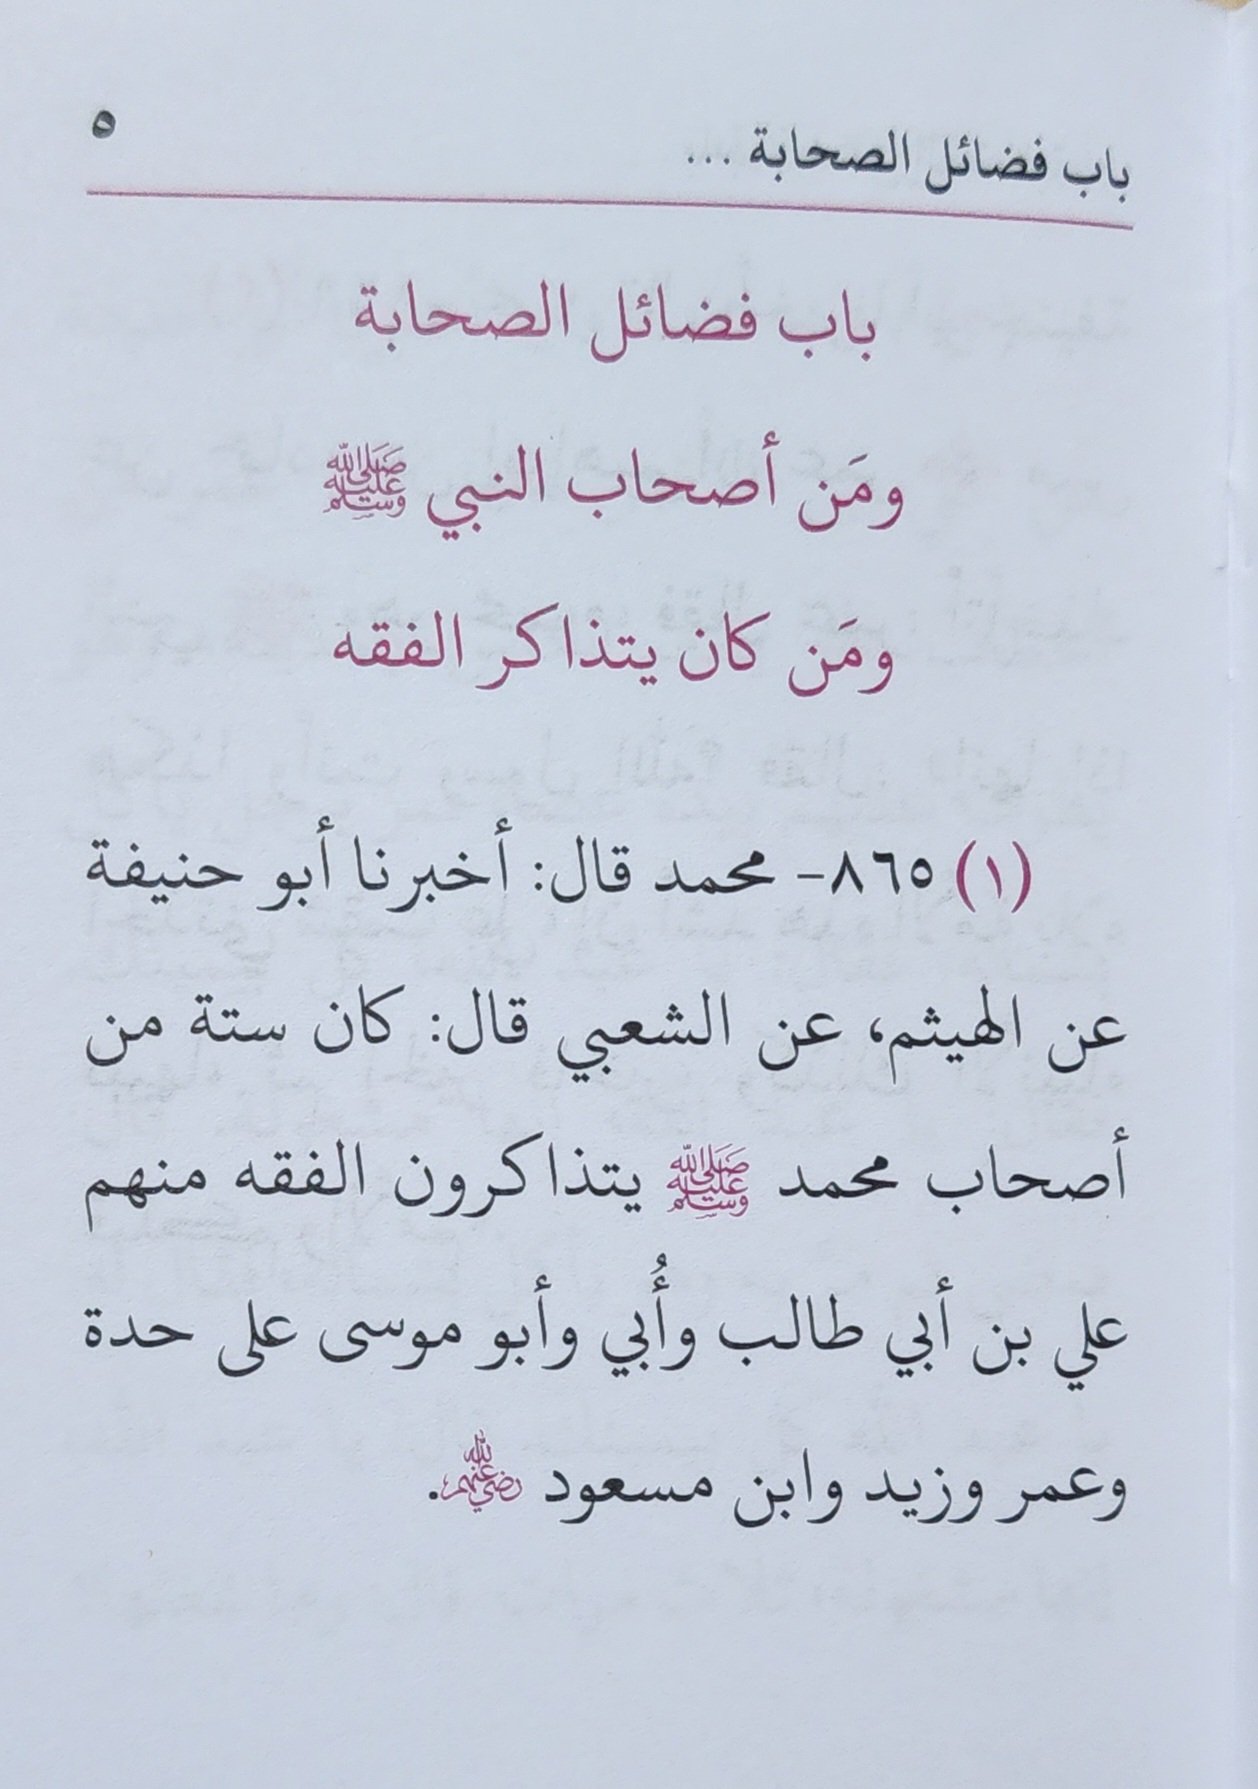 باب فضائل الصحابة ... ٥
باب فضائل الصحابة
ومَن أصحاب النبي ﷺ
ومَن كان يتذاكر الفقه
(١) ٨٦٥- محمد قال: أخبرنا أبو حنيفة
عن الهيثم، عن الشعبي قال: كان ستة من
أصحاب محمد ﷺ يتذاكرون الفقه منهم
علي بن أبي طالب وأُبي وأبو موسى على حدة
وعمر وزيد وابن مسعود رضي الله عنهم.